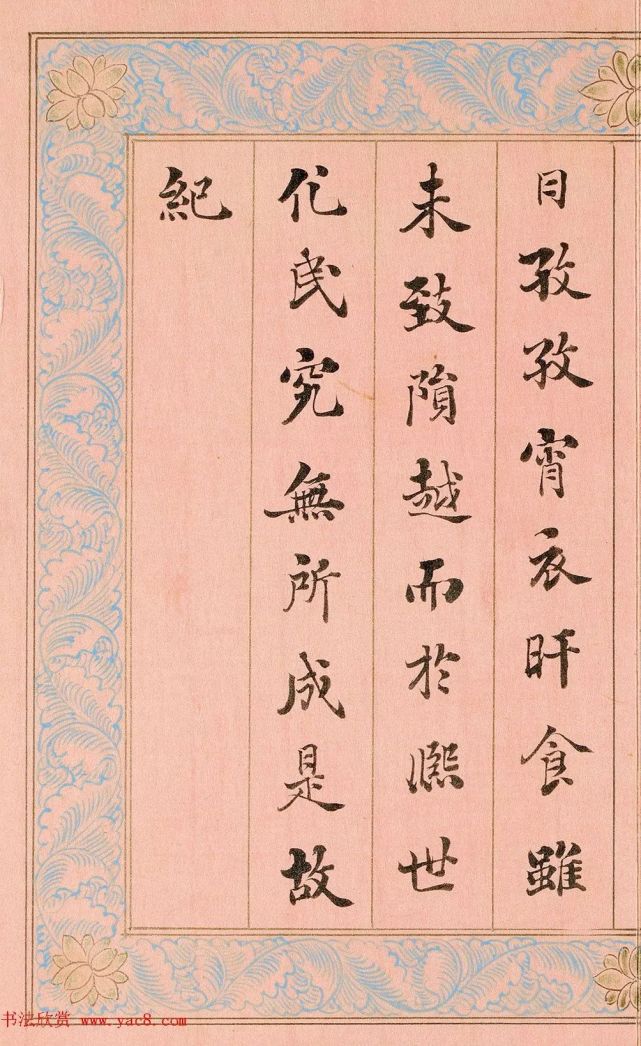 日孜孜宵衣旰食雖
未致隕越而於熈世
化民究無所成是故
紀
书法欣赏 www.yac8.com